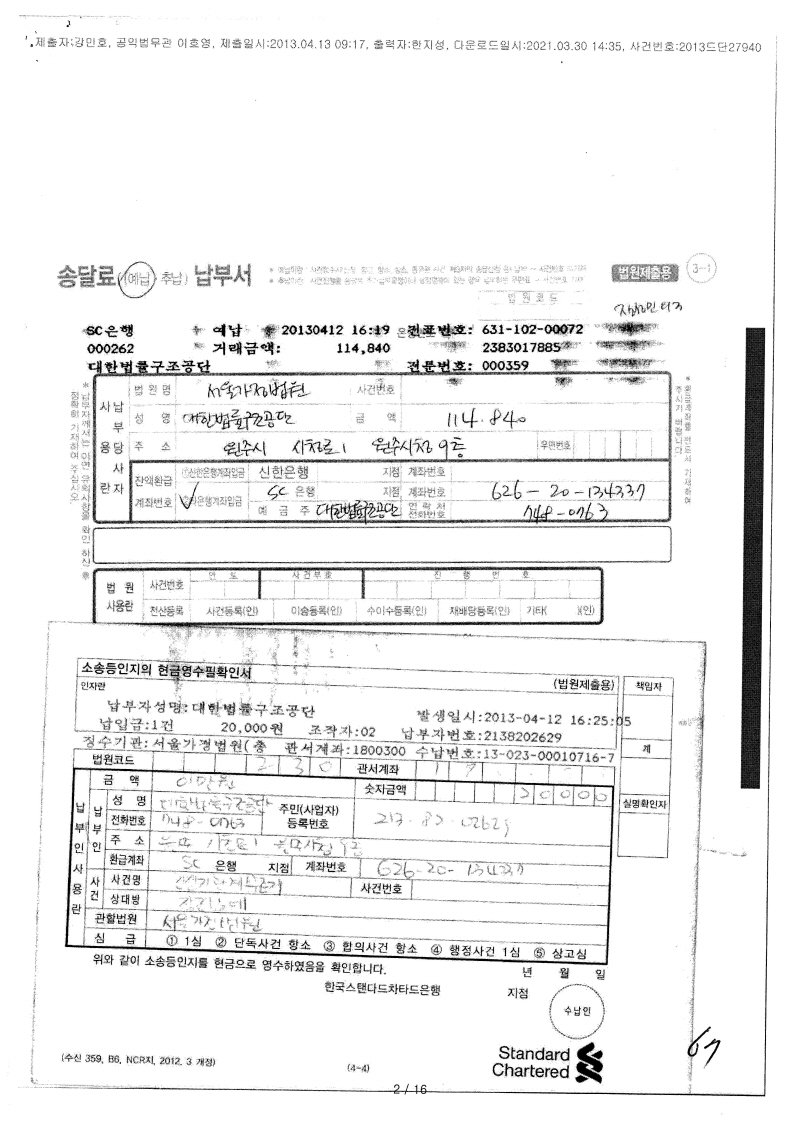 제출자:강민호, 공익법무관 이효영, 제출일시:2013.04.13 09:17, 출력자:한지성, 다운로드일시:2021.03.30 14:35, 사건번호:2013드단27940
송달료(예납·추납) 납부서
법원제출용 3-1
법원코드
SC은행 예납 20130412 16:19 전표번호: 631-102-00072
000262 거래금액: 114,840 2383017885
대한법률구조공단 전문번호: 000359
납부당사자 사용란
법원명 서울가정법원 사건번호
성명 대한법률구조공단 금액 114.840
주소 원주시 시청로1 원주시청 9층 우편번호
잔액환급 계좌번호
①신한은행계좌입금 신한은행 지점 계좌번호
타은행계좌입금 SC 은행 지점 계좌번호 626-20-134337
예금주 대한법률구조공단 연락처 전화번호 748-0763
법원 사용란
사건번호 연도 사건부호 진행번호
전산등록 사건등록(인) 이송등록(인) 수이수등록(인) 재배당등록(인) 기타( )(인)
소송등인지의 현금영수필확인서
(법원제출용) 책임자
인자란
납부자성명:대한법률구조공단 발생일시:2013-04-12 16:25:05
납입금:1건 20,000원 조작자:02 납부자번호:2138202629
징수기관:서울가정법원(총 관서계좌:1800300 수납번호:13-023-00010716-7
계
법원코드 230 관서계좌
납부인사용란
금액 이만원 숫자금액 20000
실명확인자
납부인
성명 대한법률구조공단 주민(사업자)등록번호 213-82-02629
전화번호 748-0763
주소
환급계좌 SC 은행 지점 계좌번호 626-20-134337
사건
사건명 사건번호
상대방
관할법원 서울가정법원
심급 ① 1심 ② 단독사건 항소 ③ 합의사건 항소 ④ 행정사건 1심 ⑤ 상고심
위와 같이 소송등인지를 현금으로 영수하였음을 확인합니다.
년 월 일
한국스탠다드차타드은행 지점
수납인
67
Standard
Chartered
(수신 359, B6, NCR지, 2012. 3 개정)
(4-4)
2 / 16